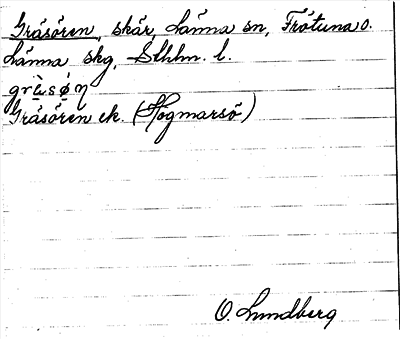 Gråsören, skär, Länna sn, Frötuna o.
Länna skg, Sthlm. l.
Gråsören ek. (Högmarsö)
O. Lundberg